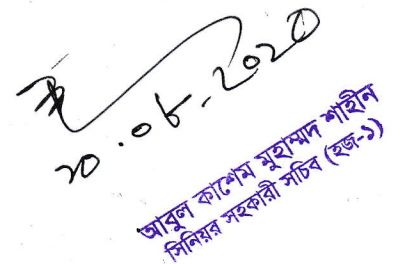 ২০.০৮.২০২০
আবুল কাশেম মুহাম্মদ শাহীন
সিনিয়র সহকারী সচিব (হজ-১)